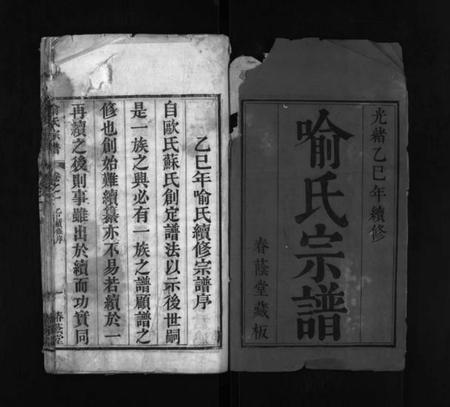 光緒乙巳年續修
喻氏宗譜
春蔭堂藏板
乙巳年喻氏續修宗譜序
自歐氏蘇氏創定譜法以示後世嗣
是一族之興必有一族之譜顧譜之
修也創始難續纂亦不易若續於一
再續之後則事雖出於續而功實同
氏宗譜 卷之一 序 春蔭堂